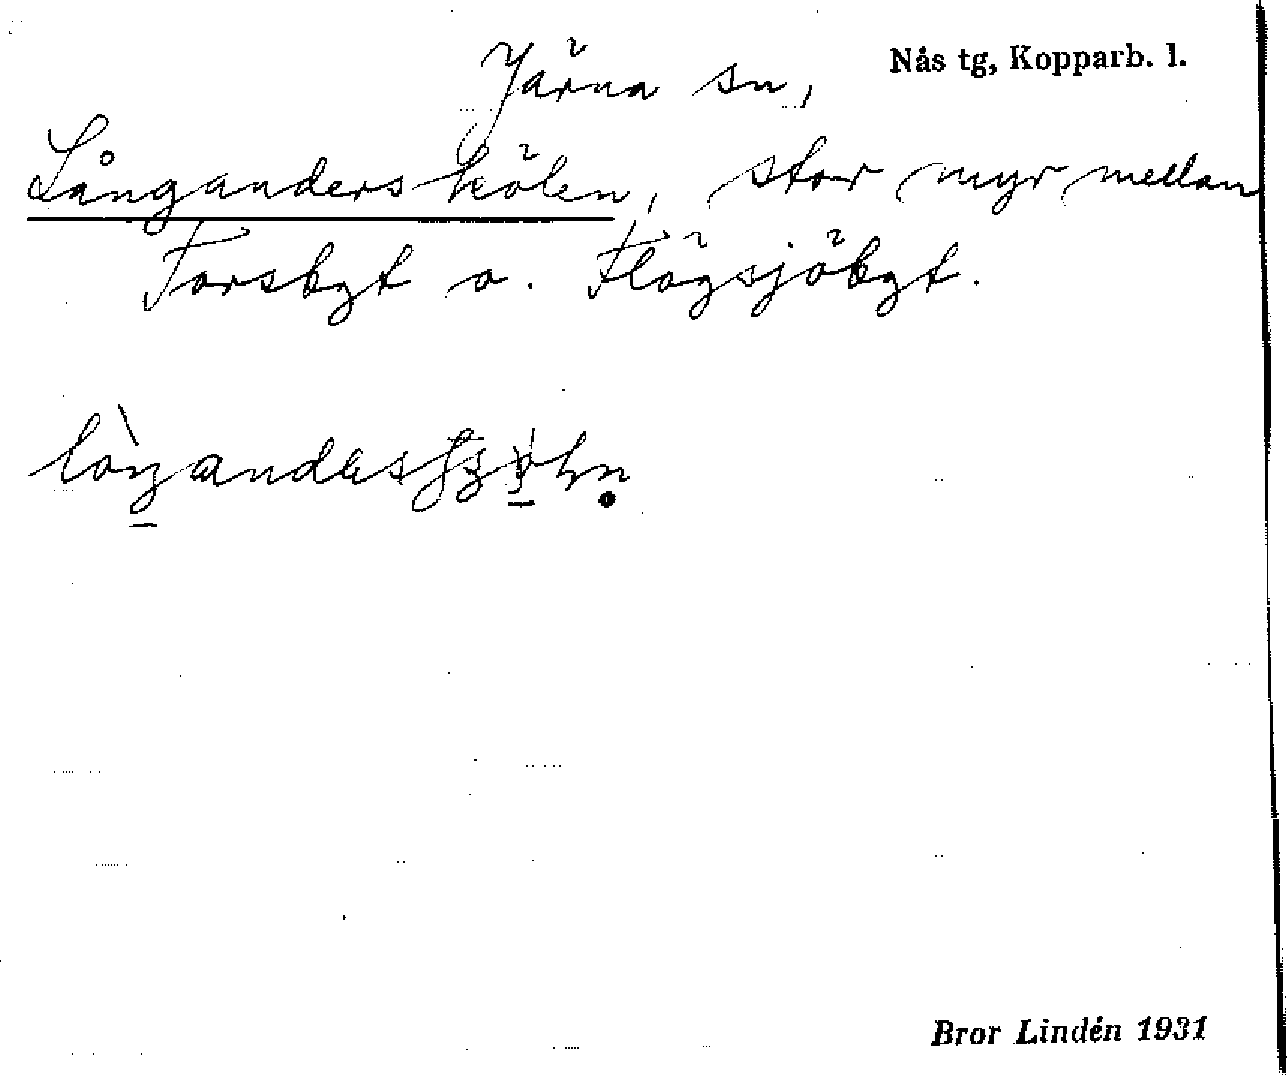 Järna sn, Nås tg, Kopparb. l.
Långanderskölen, stor myr mellan
Forsbgt o. Flögsjöbgt.
Bror Lindén 1931